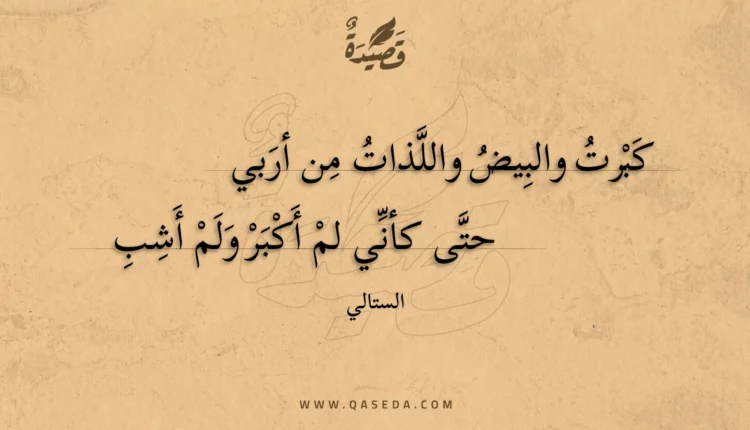 قَصِيدَةٌ
كَبْرتُ والبِيضُ واللَّذاتُ مِن أرَبي
حتَّى كأنِّي لمْ أَكْبَرْ وَلَمْ أَشِبِ
الستالي
WWW.QASEDA.COM